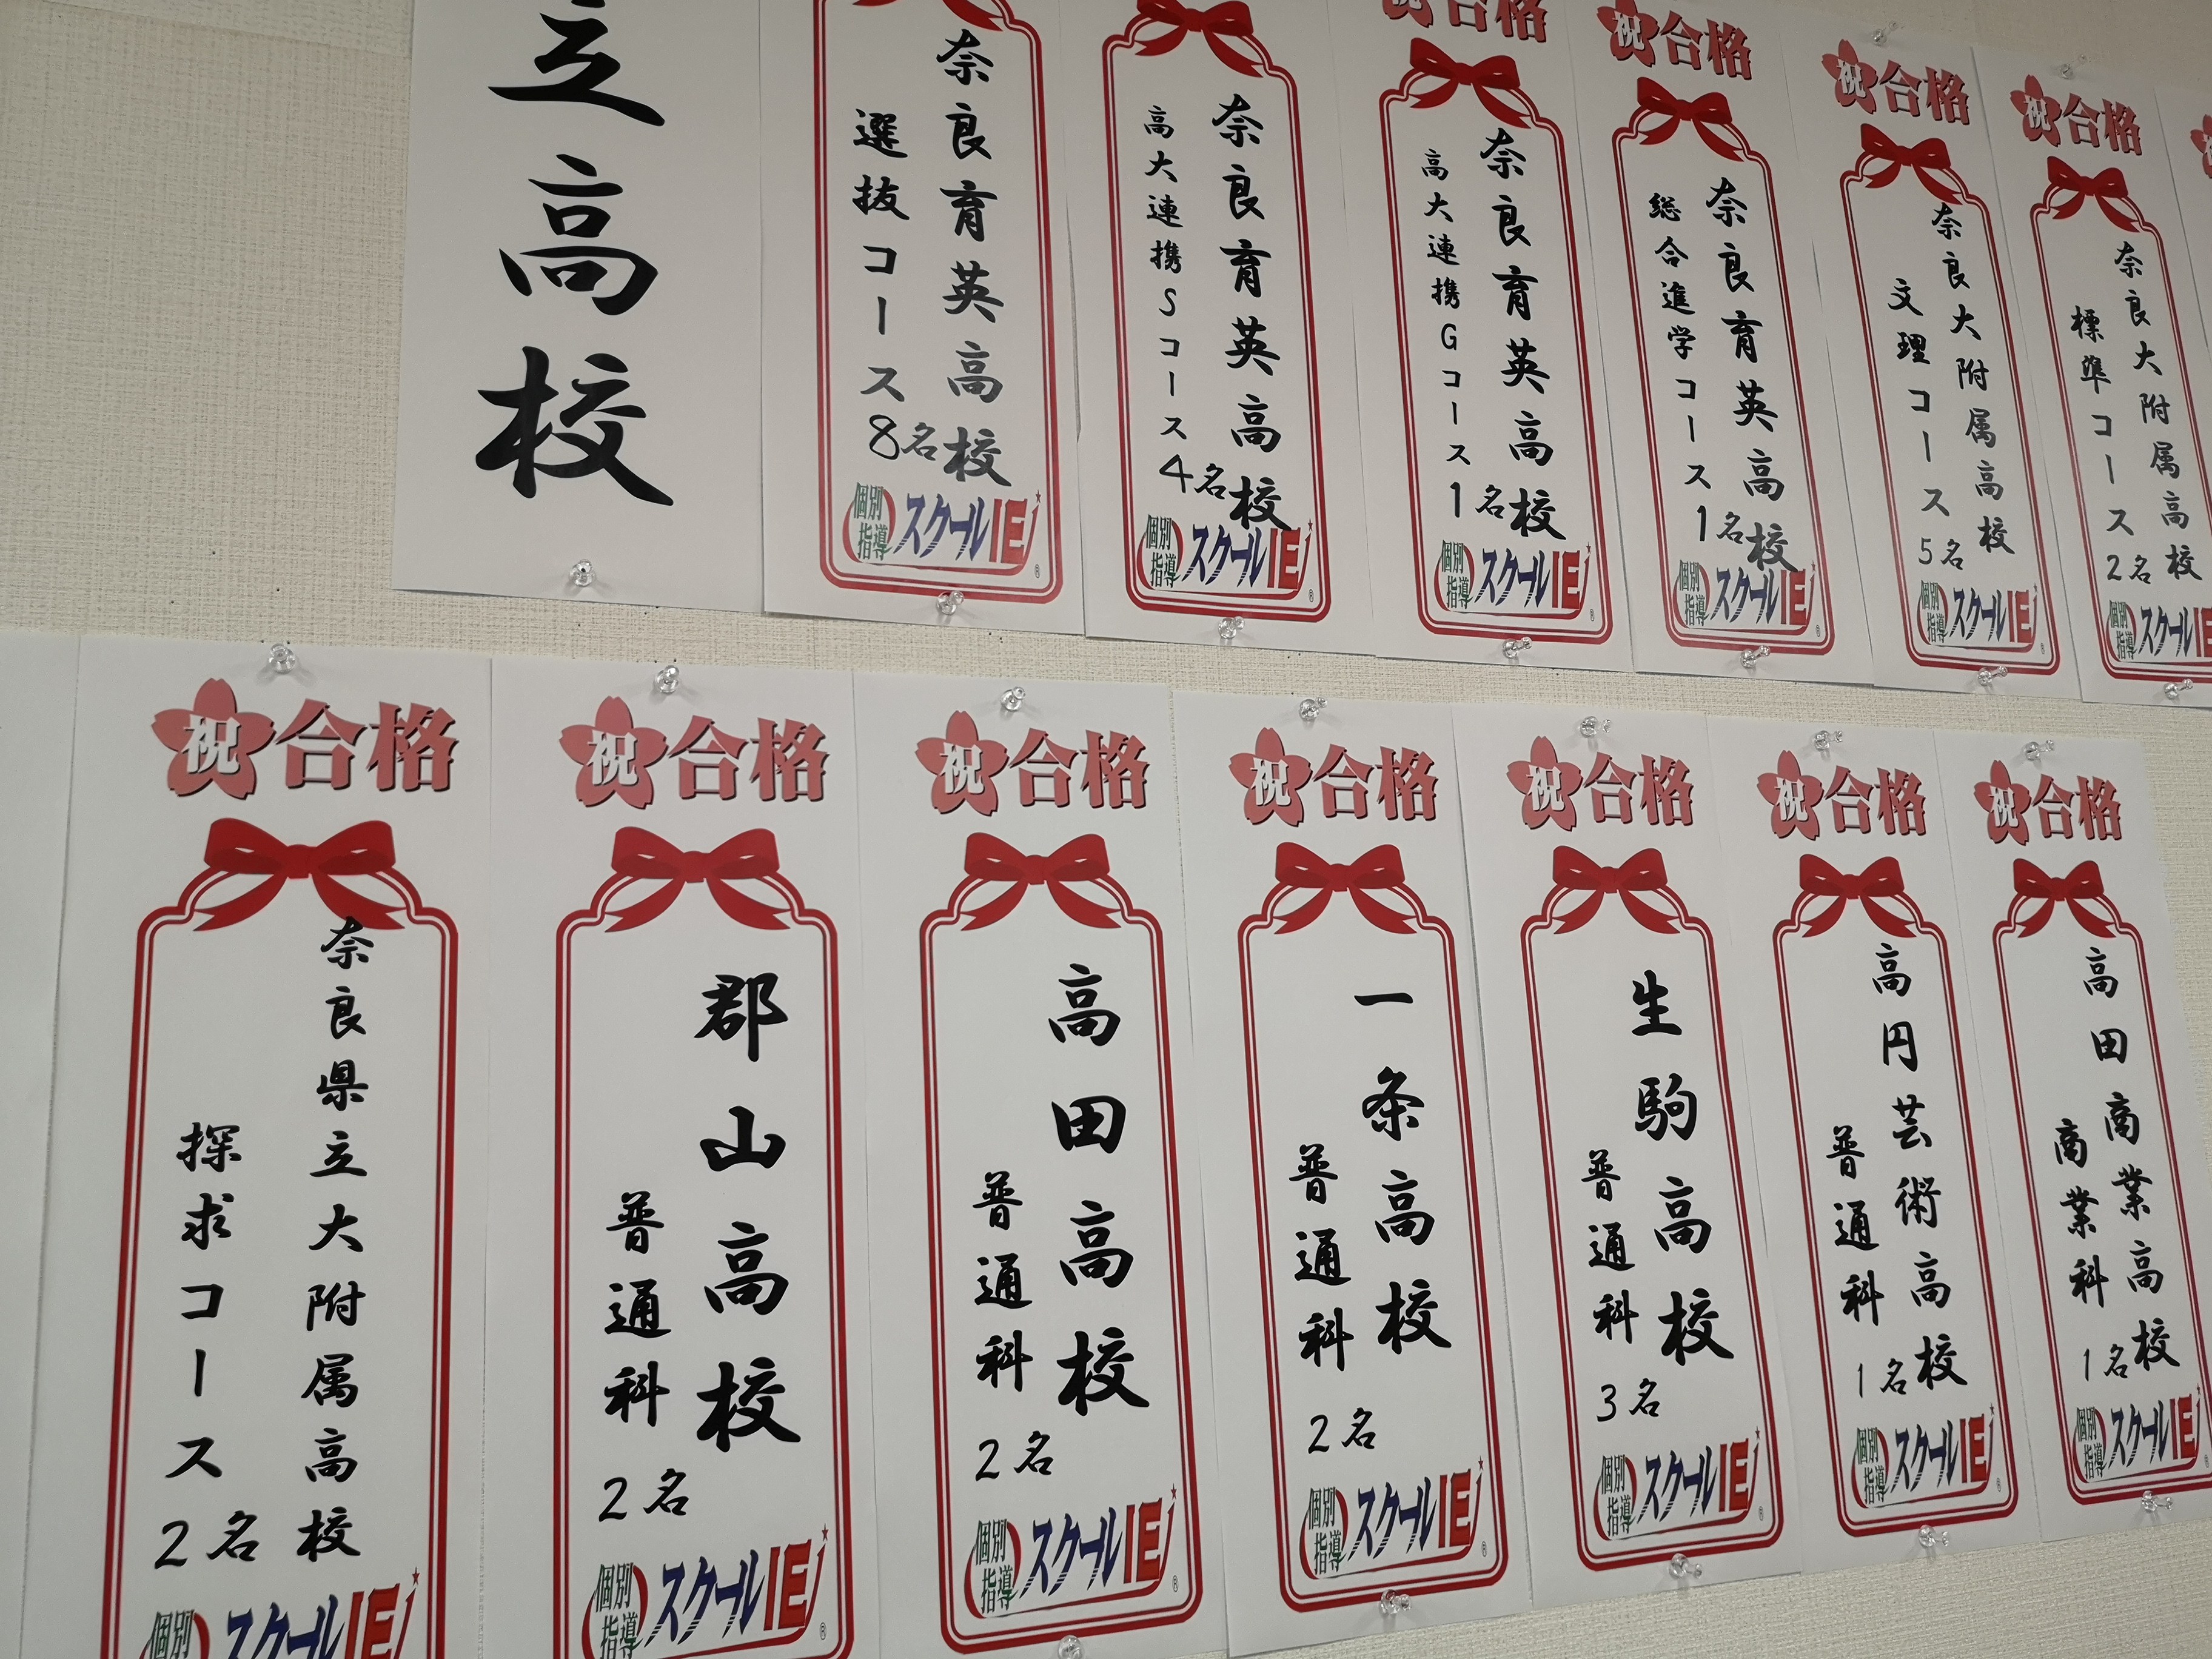 立高校
奈良育英高校
選抜コース
8名
個別指導 スクールIE
奈良育英高校
高大連携Sコース
4名
個別指導 スクールIE
合格
奈良育英高校
高大連携Gコース
1名
個別指導 スクールIE
祝合格
奈良育英高校
総合進学コース
1名
個別指導 スクールIE
祝合格
奈良大附属高校
文理コース
5名
個別指導 スクールIE
祝合格
奈良大附属高校
標準コース
2名
個別指導 スクールIE
祝合格
奈良県立大附属高校
探求コース
2名
個別指導 スクールIE
祝合格
郡山高校
普通科
2名
個別指導 スクールIE
祝合格
高田高校
普通科
2名
個別指導 スクールIE
祝合格
一条高校
普通科
2名
個別指導 スクールIE
祝合格
生駒高校
普通科
3名
個別指導 スクールIE
祝合格
高円芸術高校
普通科
1名
個別指導 スクールIE
祝合格
高田商業高校
商業科
1名
個別指導 スクールIE